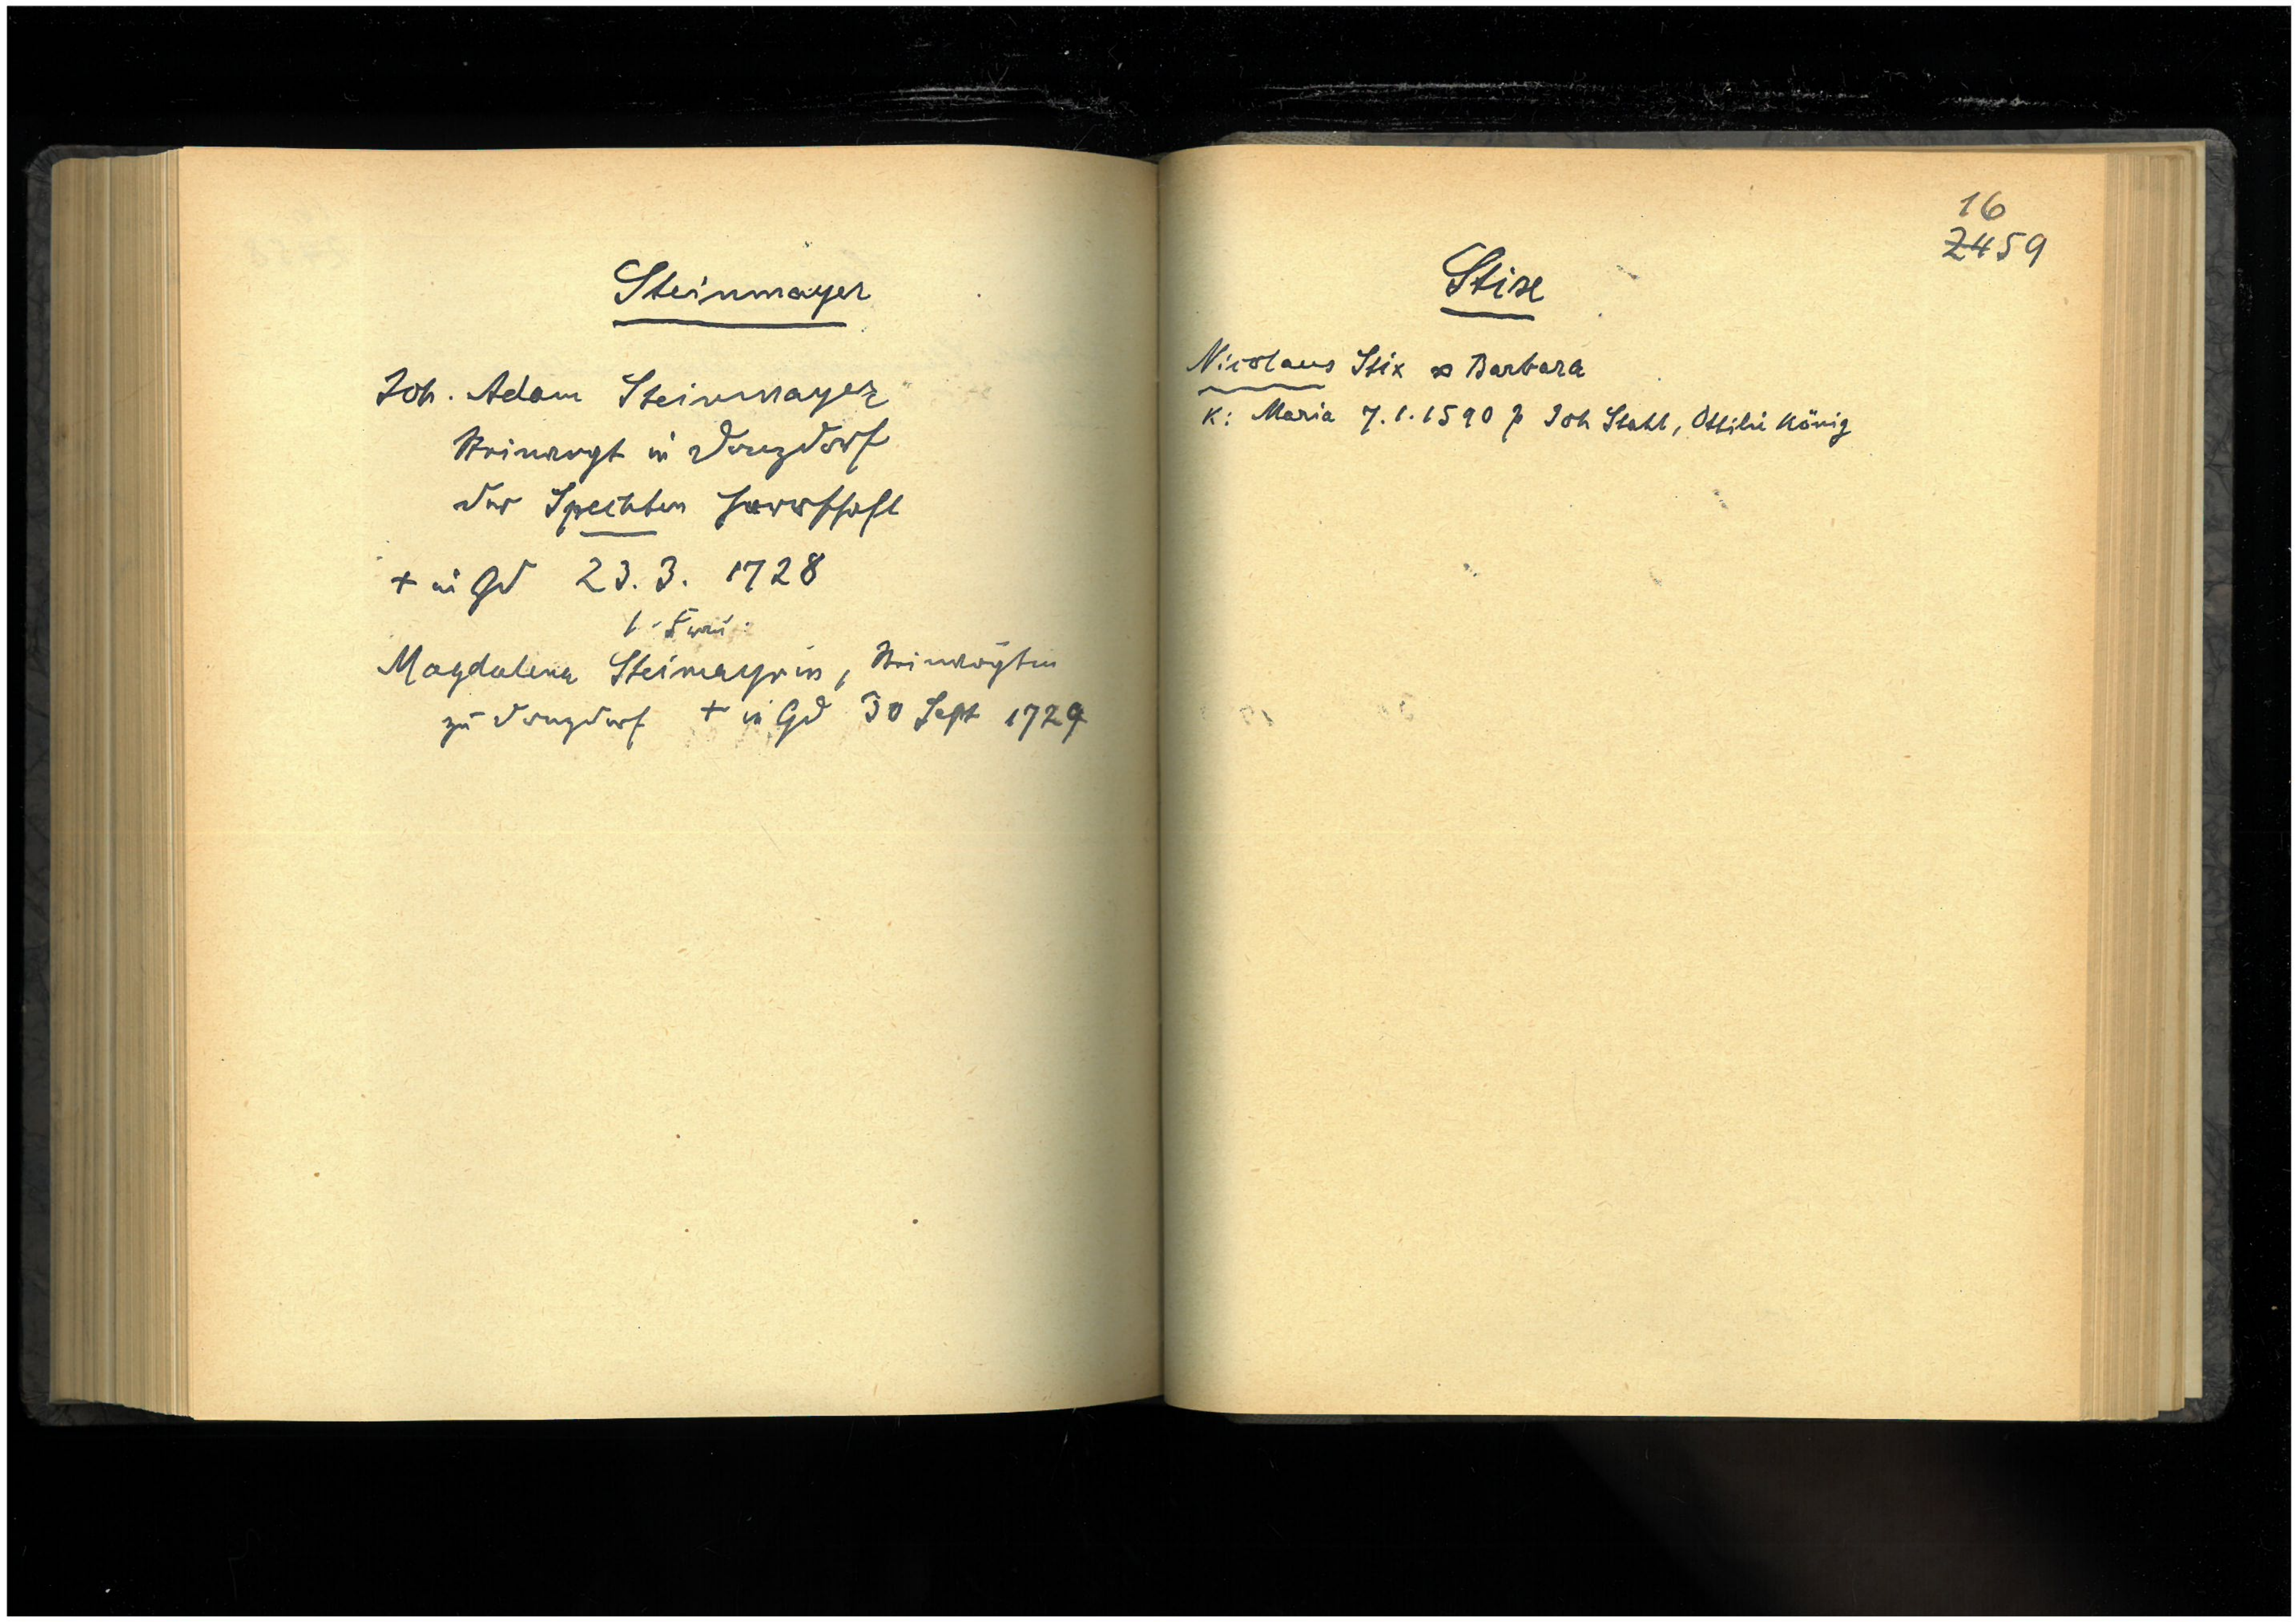 Steinmayer
Joh. Adam Steinmayer
in Donzdorf
der Spechten Herrschaft
+ in Gd 23.3. 1728
1. Frau:
Magdalena Steimayrin,
zu Donzdorf + in Gd 30 Sept 1729
16
2459
Stix
Nicolaus Stix ∞ Barbara
K: Maria 7.1.1590 p Joh Stahl, Ottilie König